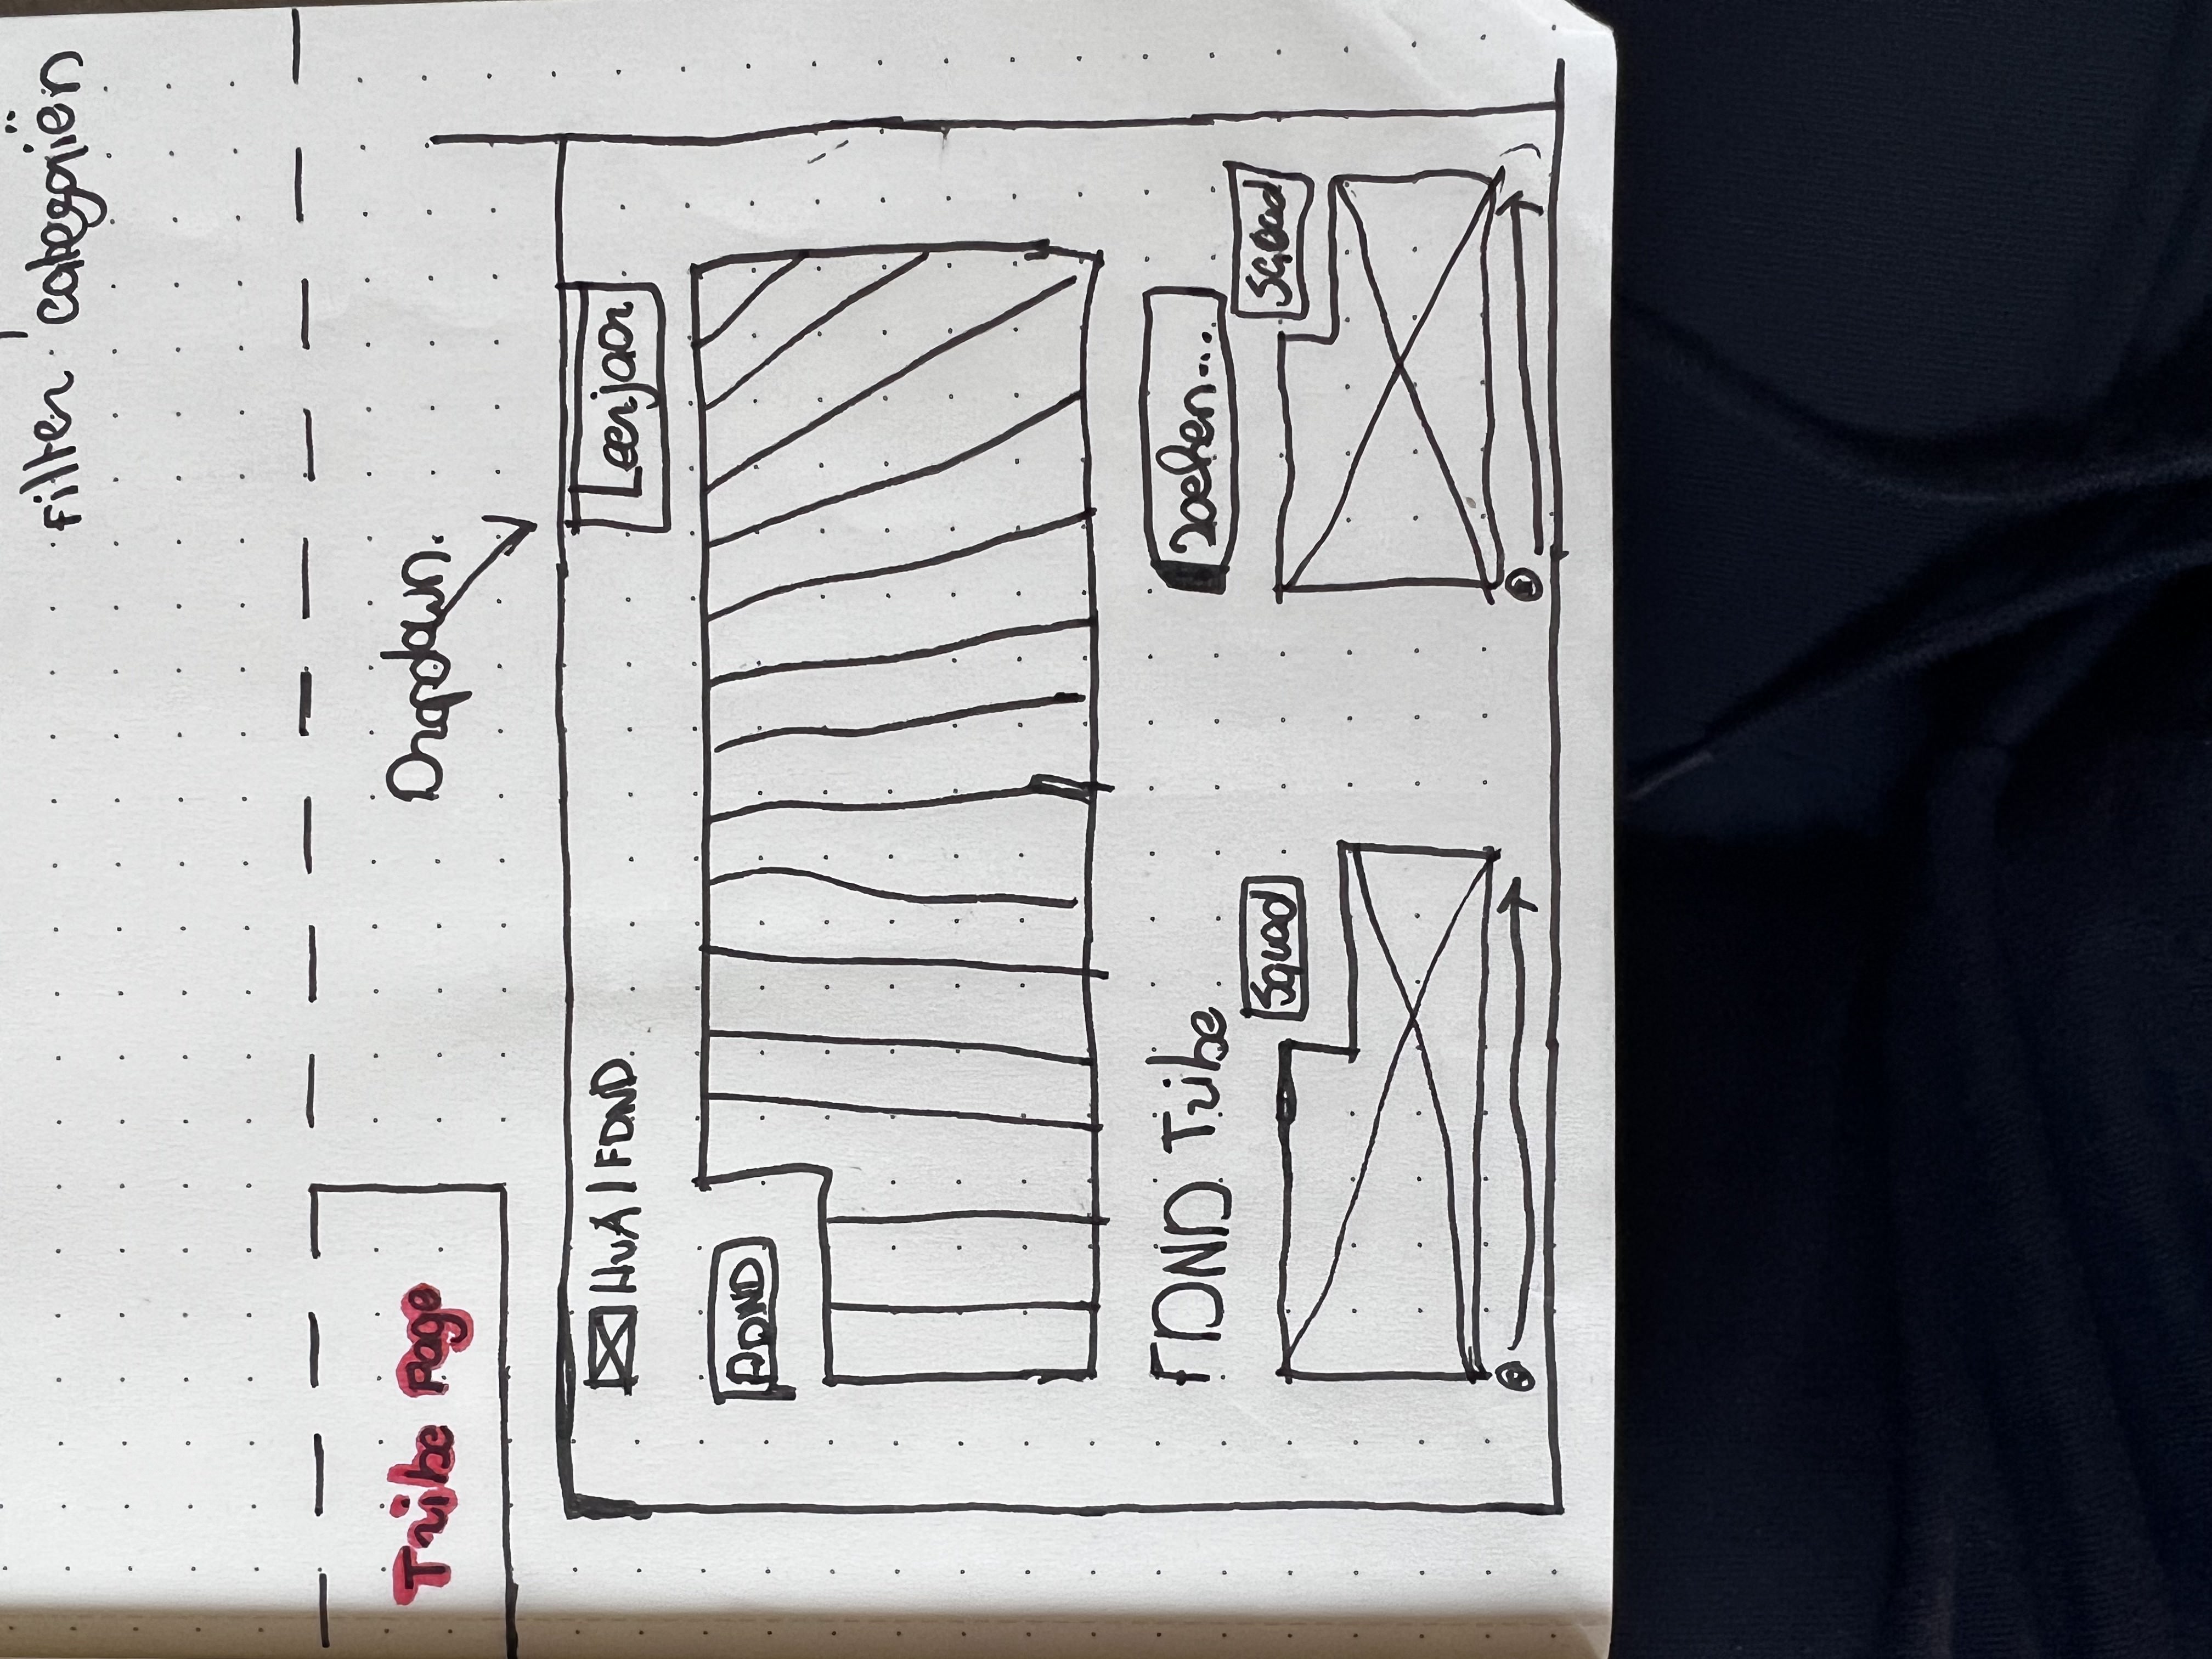 Filter categoriën
Tribe Page
Dropdown.
HvA | FDND
Leerjaar
FDND
FDND Tribe
Zoeken...
Squad
Squad